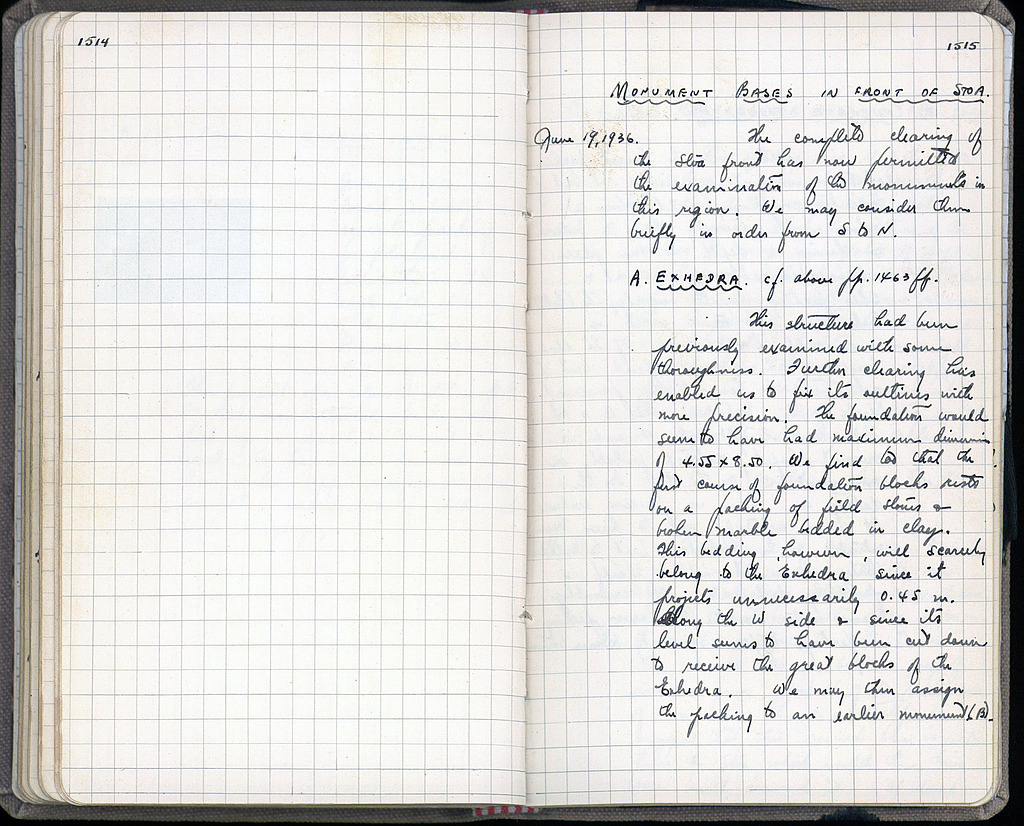 1514
1515
MONUMENT BASES IN FRONT OF STOA.
June 19, 1936. The complete clearing of
the Stoa front has now permitted
the examination of the monuments in
this region. We may consider them
briefly in order from S to N.
A. EXHEDRA. cf. above pp. 1463 ff.
This structure had been
previously examined with some
thoroughness. Further clearing has
enabled us to fix its outlines with
more precision. The foundation would
seem to have had maximum dimensions
of 4.55 x 8.50. We find too that the
first course of foundation blocks rests
on a packing of field stones &
broken marble bedded in clay.
This bedding, however, will scarcely
belong to the Exhedra since it
projects unnecessarily 0.45 m.
along the W side & since its
level seems to have been cut down
to receive the great blocks of the
Exhedra. We may then assign
the packing to an earlier monument (B).